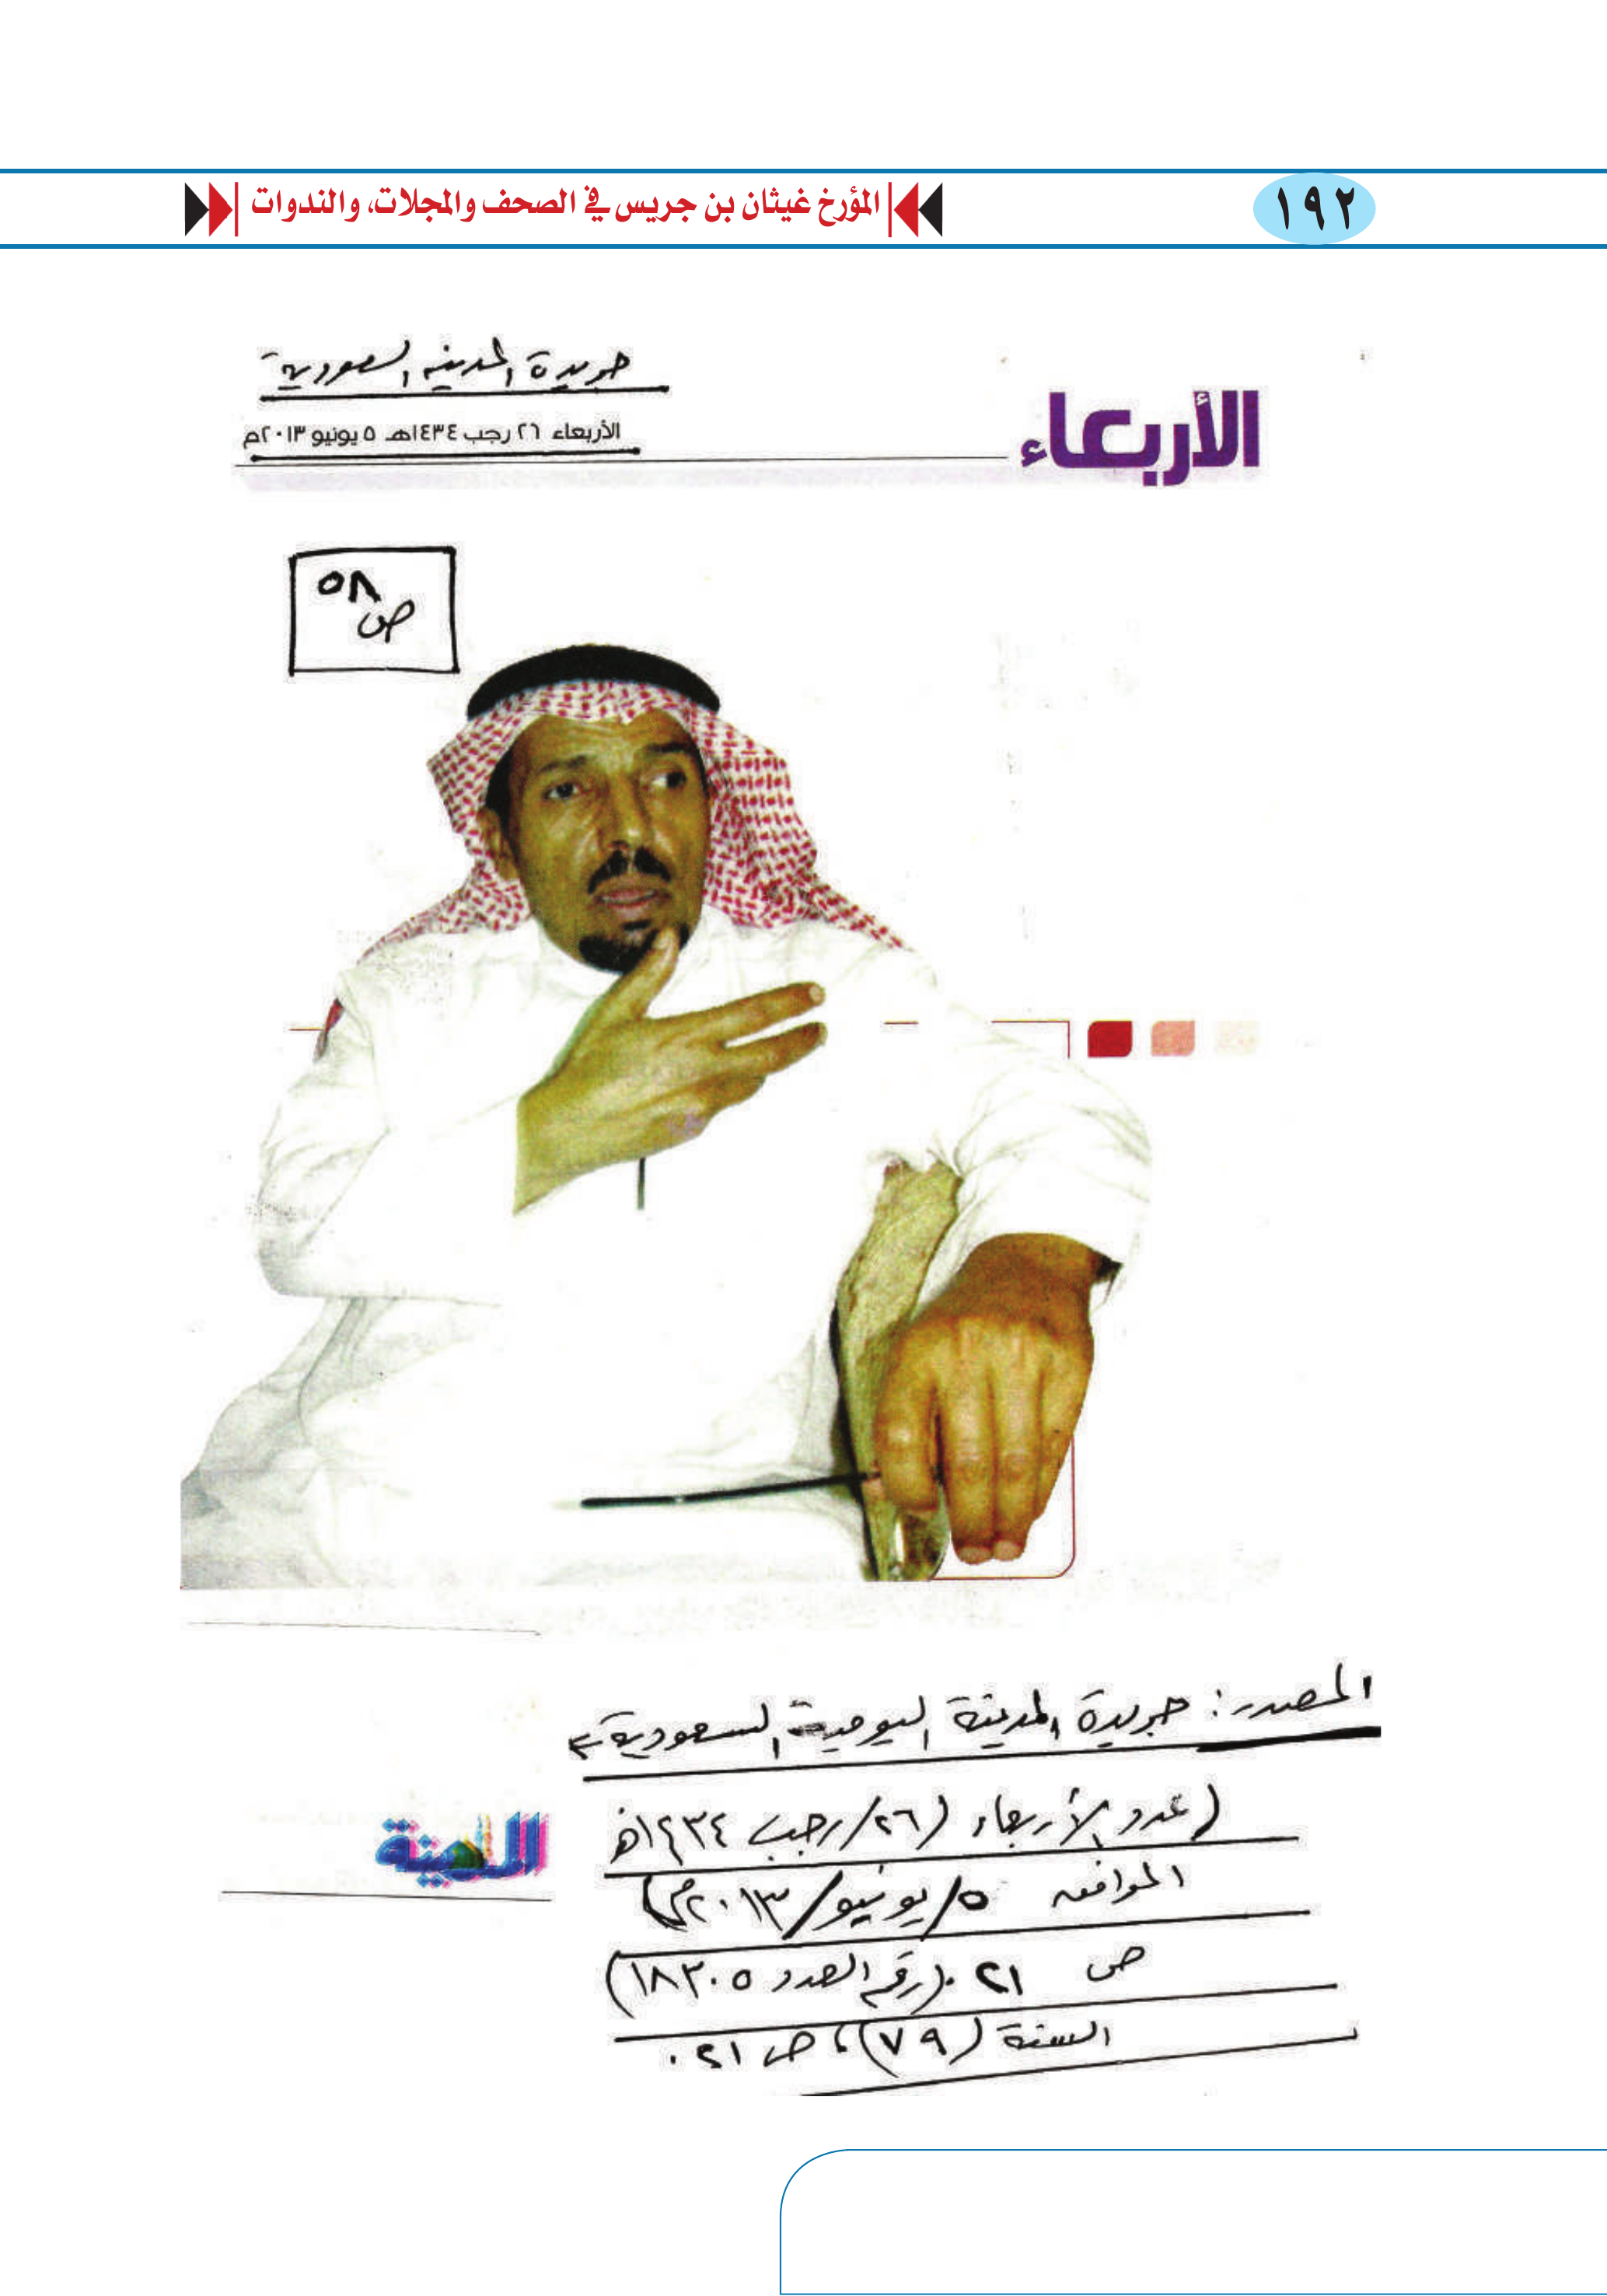 ١٩٢
المؤرخ غيثان بن جريس في الصحف والمجلات، والندوات
جريدة المدينة السعودية
الأربعاء
الأربعاء ٢٦ رجب ١٤٣٤هـ ٥ يونيو ٢٠١٣م
ص ٥٨
المصدر: جريدة المدينة اليومية السعودية
(عدد الأربعاء (٢٦/رجب ١٤٣٤هـ
الموافق ٥/يونيو/٢٠١٣م)
ص ٢١ .(رقم العدد ١٨٣٠٥)
السنة (٧٩)، ص ٢١.
المدينة